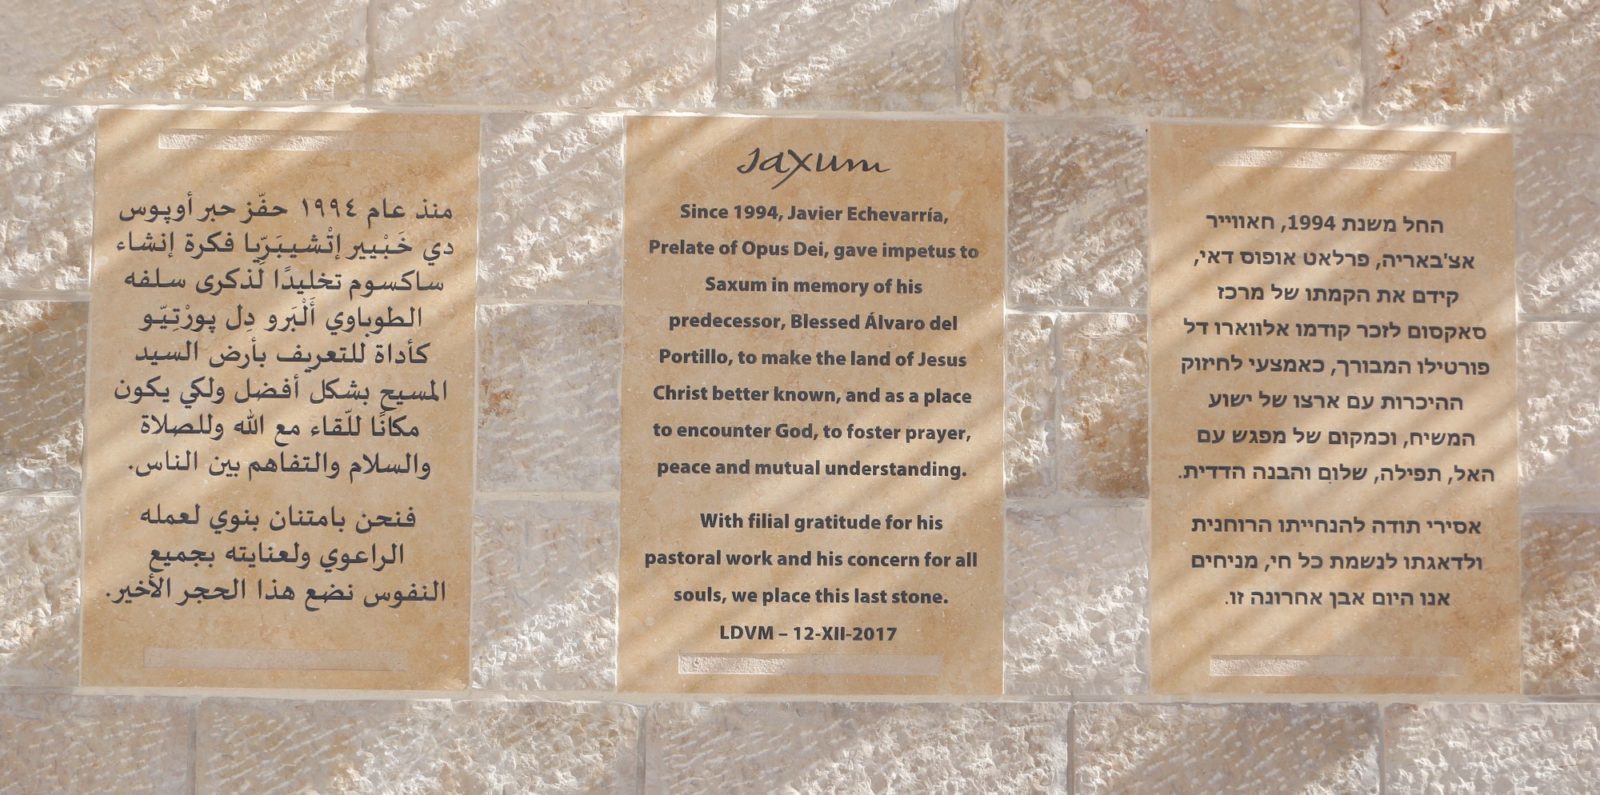 منذ عام ١٩٩٤ حفّز حبر أوپوس
دي خَبْيير إتْشيبَرّيا فكرة إنشاء
ساكسوم تخليدًا لذكرى سلفه
الطوباوي أَلْبَرو دِل پورْتِيّو
كأداة للتعريف بأرض السيد
المسيح بشكل أفضل ولكي يكون
مكانًا للّقاء مع الله وللصلاة
والسلام والتفاهم بين الناس.
فنحن بامتنان بنوي لعمله
الراعوي ولعنايته بجميع
النفوس نضع هذا الحجر الأخير.
saxum
Since 1994, Javier Echevarría,
Prelate of Opus Dei, gave impetus to
Saxum in memory of his
predecessor, Blessed Álvaro del
Portillo, to make the land of Jesus
Christ better known, and as a place
to encounter God, to foster prayer,
peace and mutual understanding.
With filial gratitude for his
pastoral work and his concern for all
souls, we place this last stone.
LDVM – 12-XII-2017
החל משנת 1994, חאווייר
אצ'באריה, פרלאט אופוס דאי,
קידם את הקמתו של מרכז
סאקסום לזכר קודמו אלווארו דל
פורטילו המבורך, כאמצעי לחיזוק
ההיכרות עם ארצו של ישוע
המשיח, וכמקום של מפגש עם
האל, תפילה, שלום והבנה הדדית.
אסירי תודה להנחייתו הרוחנית
ולדאגתו לנשמת כל חי, מניחים
אנו היום אבן אחרונה זו.